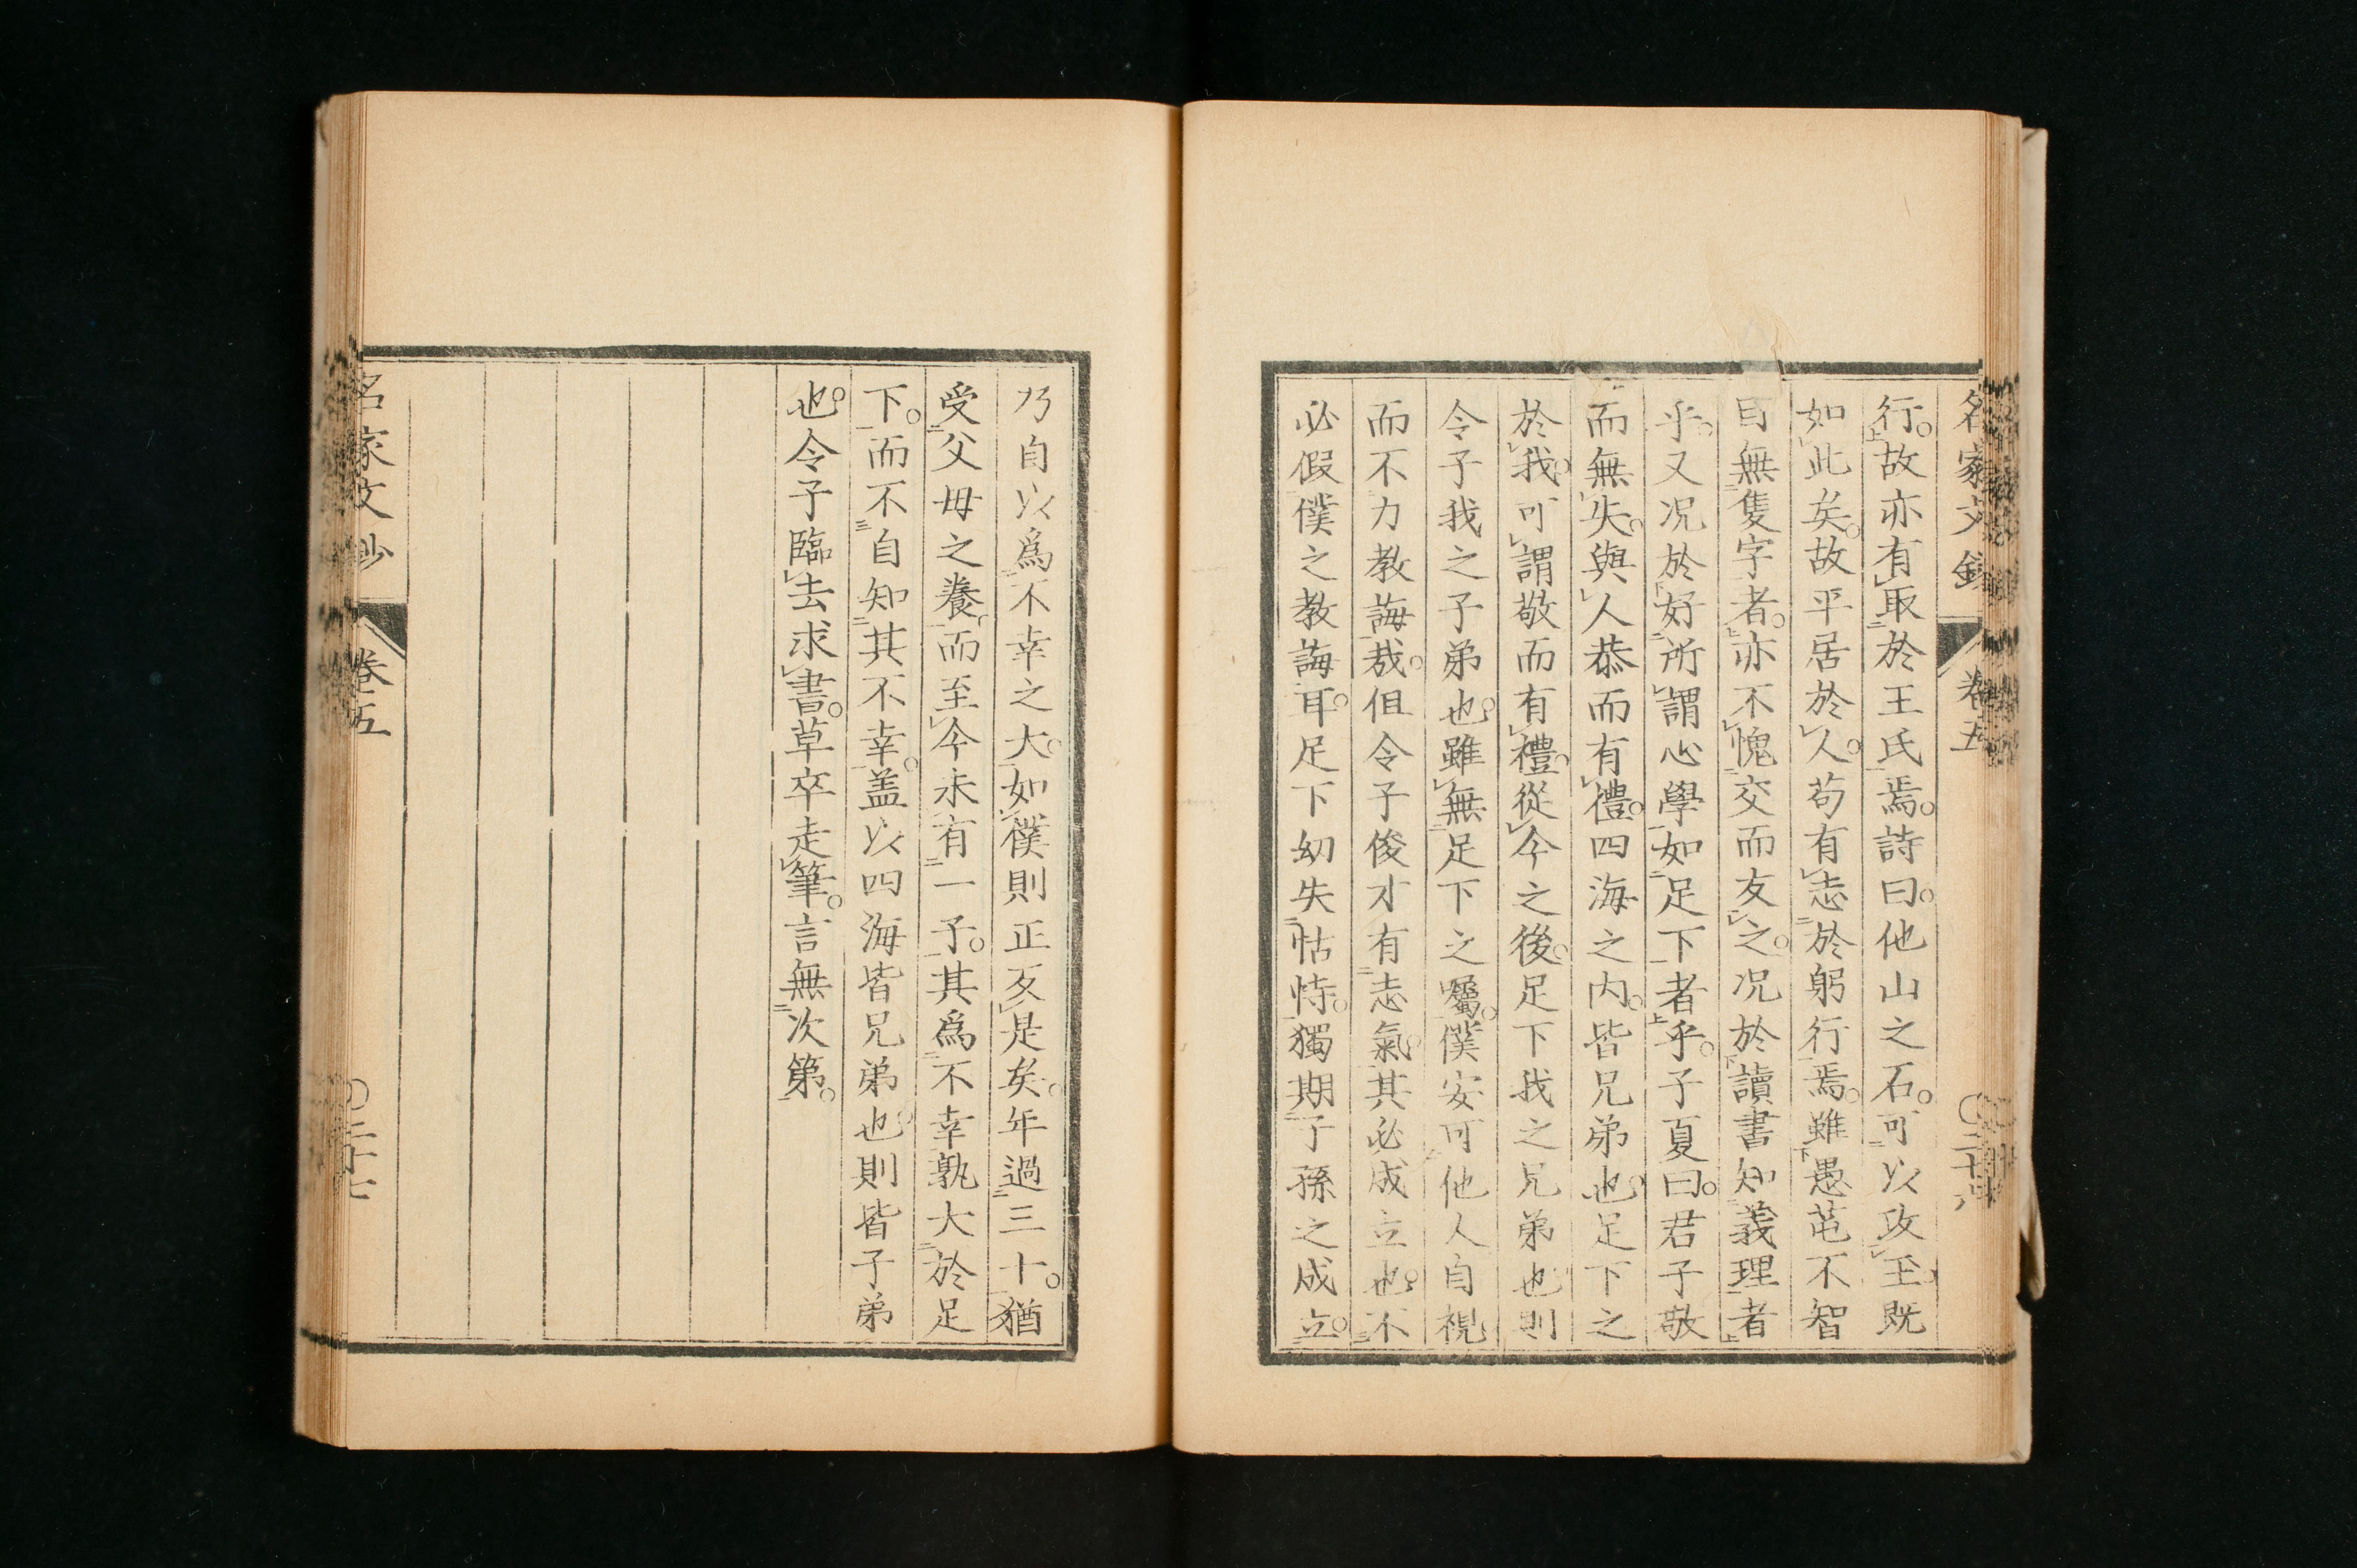 名家文鈔 卷五 〇二十六
行。故亦有取於王氏焉。詩曰。他山之石。可以攻玉。既
如此矣。故平居於人。苟有志於躬行焉。雖愚芚不智
目無隻字者。亦不愧交而友之。況於讀書知義理者
乎。又況於好所謂心學如足下者乎。子夏曰。君子敬
而無失。與人恭而有禮。四海之內。皆兄弟也。足下之
於我。可謂敬而有禮。從今之後。足下我之兄弟也則
令子我之子弟也。雖無足下之囑。僕安可他人自視
而不力教誨哉。但令子俊才有志氣。其必成立也。不
必假僕之教誨耳。足下幼失怙恃。獨期子孫之成立。
乃自以爲不幸之大。如僕則正反是矣。年過三十。猶
受父母之養而至今未有一子。其爲不幸孰大於足
下。而不自知其不幸。盖以四海皆兄弟也。則皆子弟
也。令子臨去求書。草卒走筆。言無次第。
名家文鈔 卷五 〇二十七